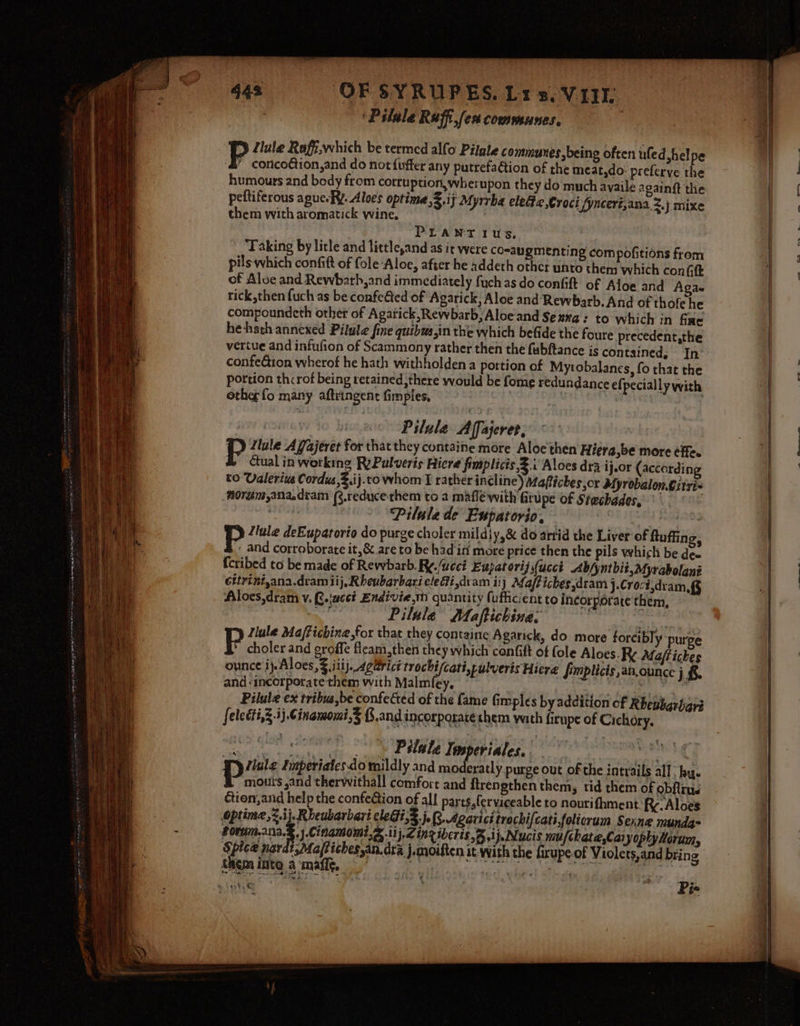 448 OF SYRUPES. LIB. VIII.
Pilulæ Ruffi, seu communes.
Pilulæ Ruffi, which be termed also Pilulæ communes, being often used, helpe
concoction, and do not suffer any putrefaction of the meat, do preserve the
humours and body from corruption, wherupon they do much availe against the
pestiferous ague. ℞. Aloes optimæ, ℥.ij Myrrhæ electæ, Croci synceri, ana ℥.j mixe
them with aromatick wine.
PLANTIUS.
Taking by litle and little, and as it were co-augmenting compositions from
pils which consist of sole Aloe, after he addeth other unto them which consist
of Aloe and Rewbarb, and immediately such as do consist of Aloe and Aga-
rick, then such as be confected of Agarick, Aloe and Rewbarb. And of those he
compoundeth other of Agarick, Rewbarb, Aloe and Senna: to which in fine
he hath annexed Pilulæ sine quibus, in the which beside the foure precedent, the
vertue and infusion of Scammony rather then the substance is contained. In
confection wherof he hath withholden a portion of Myrobalanes, so that the
portion therof being retained, there would be some redundance especially with
other so many astringent simples.
Pilulæ Assajeret.
Pilulæ Assajeret for that they containe more Aloe then Hiera, be more effe-
ctual in working ℞ Pulveris Hieræ simplicis, ℥.i Aloes dra ij. or (according
to Valerius Cordus, ℥.ij. to whom I rather incline) Mastiches, or Myrobalon. Citri-
norum, ana, dram ß. reduce them to a masse with sirupe of Stœchades.
Pilulæ de Eupatorio.
Pilulæ de Eupatorio do purge choler mildly, & do arrid the Liver of stuffing,
and corroborate it, & are to be had in more price then the pils which be de-
scribed to be made of Rewbarb. ℞. succi Eupatorij, succi Absynthii, Myrabolani
citrini, ana. dram iij. Rheubarbari electi, dram iij Mastiches, dram j. Croci, dram, ß
Aloes, dram v. ß. succi Endiviæ, in quantity sufficient to incorporate them.
Pilulæ Mastichinæ.
Pilulæ Mastichinæ, for that they containe Agarick, do more forcibly purge
choler and grosse fleam, then they which consist of sole Aloes. ℞ Mastiches
ounce ij. Aloes, ℥.iiij. Agarici trochiscati, pulveris Hieræ simplicis, an, ounce j ß.
and incorporate them with Malmsey.
Pilulæ ex tribus, be confected of the same simples by addition of Rheubarbari
selecti, ℥.ij. Cinamomi, ℥ ß. and incorporate them with sirupe of Cichory.
Pilulæ Imperiales.
Pilulæ Imperiales do mildly and moderatly purge out of the intrails all hu-
mours, and therwithall comfort and strengthen them, rid them of obstru-
ction, and help the confection of all parts, serviceable to nourishment. ℞. Aloes
optimæ, ℥.ij. Rheubarbari electi, ℥.j. ß. Agarici trochiscati, foliorum Sennæ munda-
torum. ana. ℥.j. Cinamomi, ʒ.iij. Zingiberis, ʒ.ij. Nucis muschatæ, Caryophyllorum,
Spicæ nardi, Mastiches, an. dra j. moisten it with the sirupe of Violets, and bring
them into a masse.
Pi-